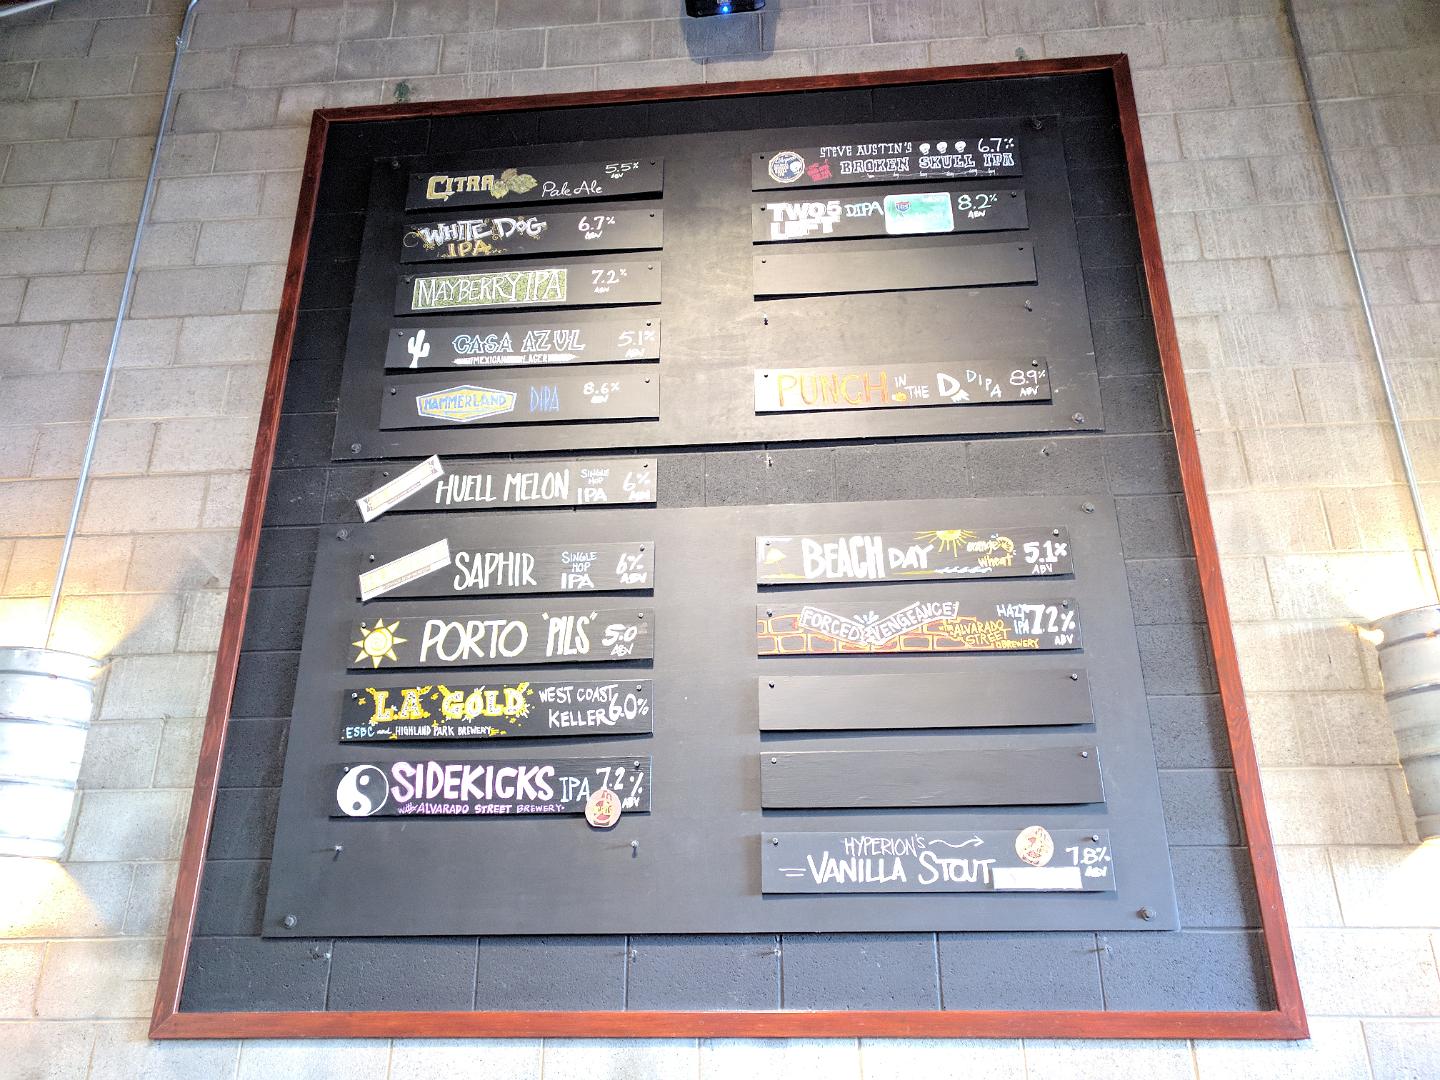 CITRA Pale Ale 5.5% ABV
WHITE DOG IPA 6.7% ABV
MAYBERRY IPA 7.2% ABV
CASA AZUL 5.1% ABV
MEXICAN LAGER
HAMMERLAND DIPA 8.6% ABV
HUELL MELON SINGLE HOP IPA 6% ABV
SAPHIR SINGLE HOP IPA 6% ABV
PORTO "PILS" 5.0 ABV
L.A GOLD WEST COAST KELLER 6.0%
ESBC and HIGHLAND PARK BREWERY
SIDEKICKS IPA 7.2% ABV
with ALVARADO STREET BREWERY
STEVE AUSTIN'S 6.7%
BROKEN SKULL IPA
TWO5 LEFT DIPA 8.2% ABV
PUNCH IN THE D DIPA 8.9% ABV
BEACH DAY orange wheat 5.1% ABV
FORCED VENGEANCE! HAZY IPA 7.2% ABV
ALVARADO STREET BREWERY
HYPERION'S
VANILLA STOUT 7.8% ABV